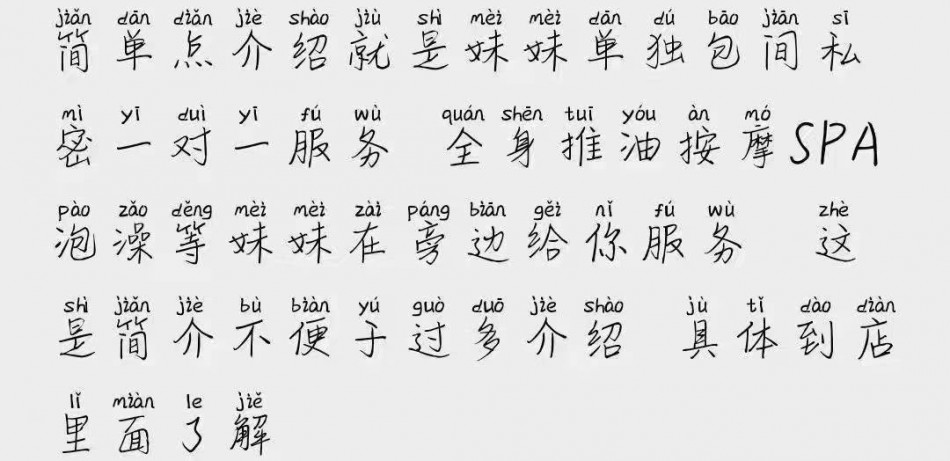 jiǎn dān diǎn jiè shào jiù shì mèi mèi dān dú bāo jiān sī
简单点介绍就是妹妹单独包间私
mì yī duì yī fú wù quán shēn tuī yóu àn mó
密一对一服务 全身推油按摩SPA
pào zǎo děng mèi mèi zài páng biān gěi nǐ fú wù zhè
泡澡等妹妹在旁边给你服务 这
shì jiǎn jiè bù biàn yú guò duō jiè shào jù tǐ dào diàn
是简介不便于过多介绍 具体到店
lǐ miàn le jiě
里面了解